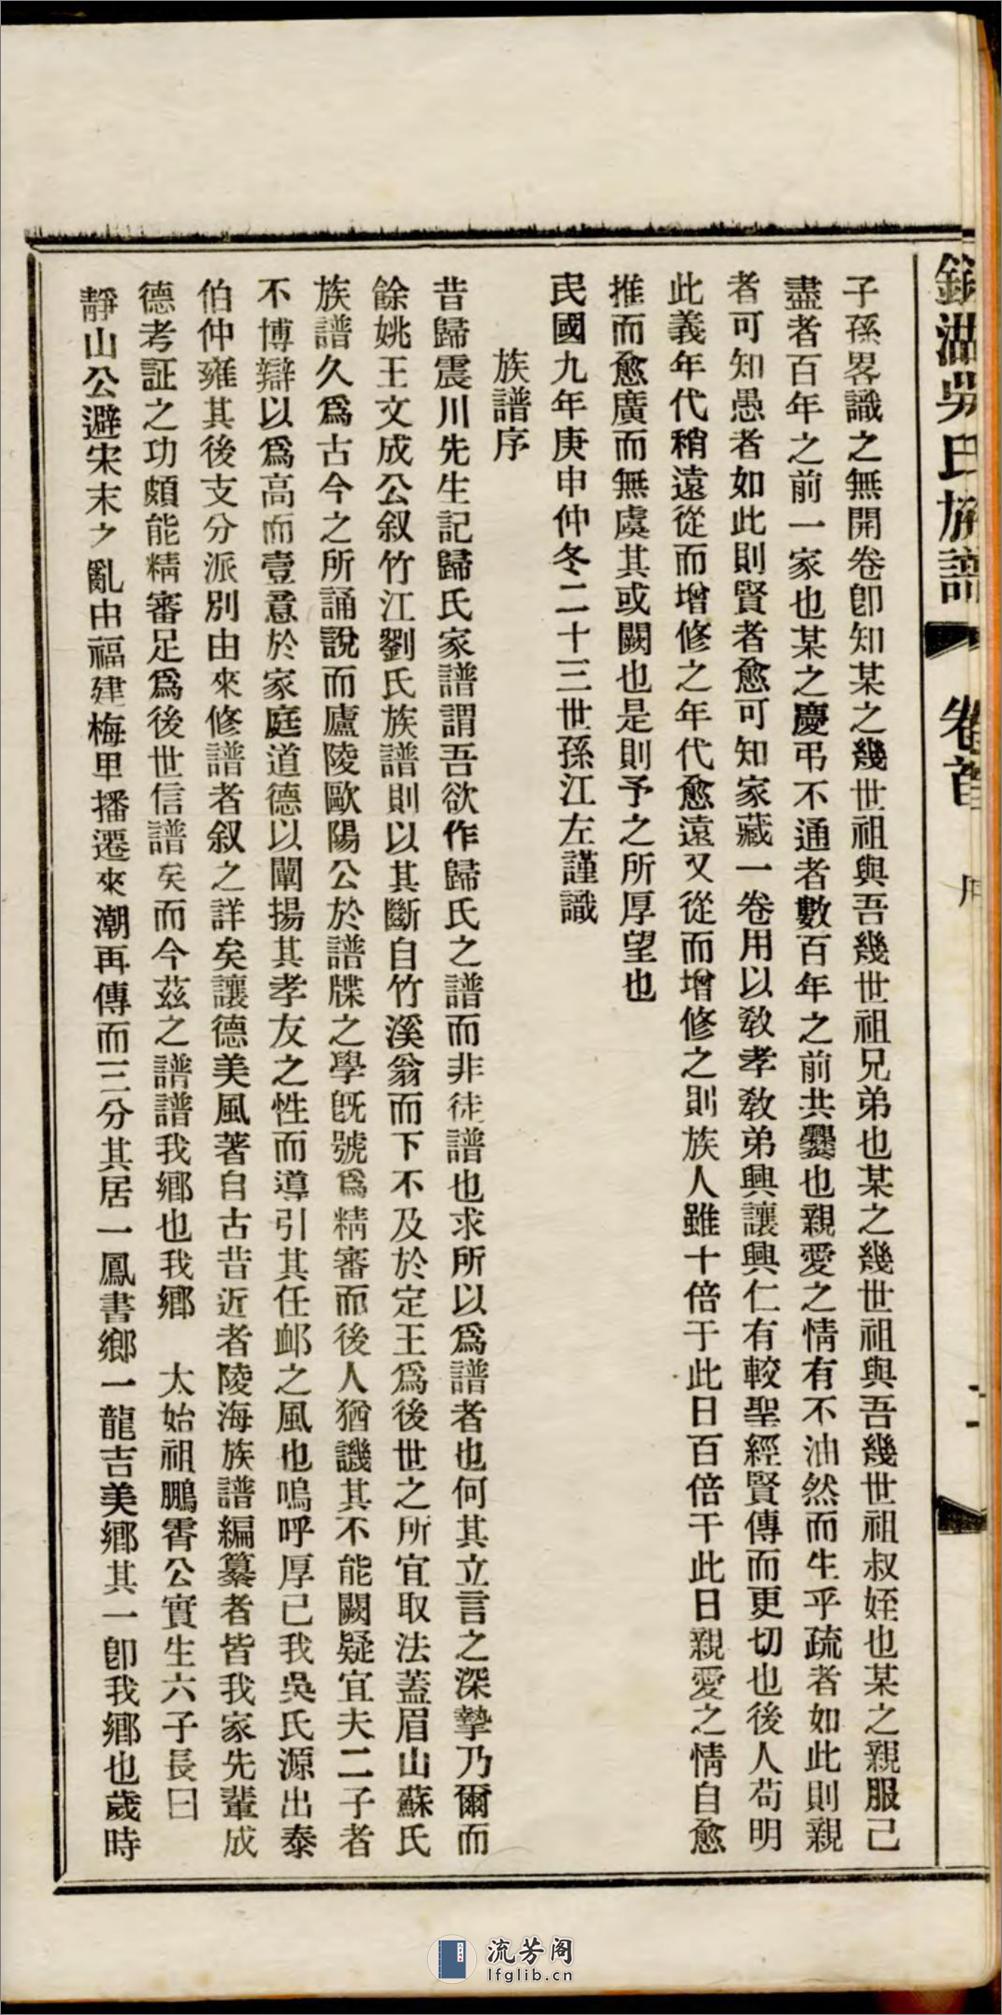 吳氏族譜 卷首
子孫畧識之無開卷卽知某之幾世祖與吾幾世祖兄弟也某之幾世祖與吾幾世祖叔姪也某之親服已
盡者百年之前一家也某之慶弔不通者數百年之前共爨也親愛之情有不油然而生乎疏者如此則親
者可知愚者如此則賢者愈可知家藏一卷用以敎孝敎弟興讓興仁有較聖經賢傳而更切也後人苟明
此義年代稍遠從而增修之年代愈遠又從而增修之則族人雖十倍于此日百倍于此日親愛之情自愈
推而愈廣而無虞其或闕也是則予之所厚望也
民國九年庚申仲冬二十三世孫江左謹識
族譜序
昔歸震川先生記歸氏家譜謂吾欲作歸氏之譜而非徒譜也求所以爲譜者也何其立言之深摯乃爾而
餘姚王文成公叙竹江劉氏族譜則以其斷自竹溪翁而下不及於定王爲後世之所宜取法蓋眉山蘇氏
族譜久爲古今之所誦說而廬陵歐陽公於譜牒之學旣號爲精審而後人猶譏其不能闕疑宜夫二子者
不博辯以爲高而壹意於家庭道德以闡揚其孝友之性而導引其任卹之風也嗚呼厚已我吳氏源出泰
伯仲雍其後支分派別由來修譜者叙之詳矣讓德美風著自古昔近者陵海族譜編纂者皆我家先輩成
德考証之功頗能精審足爲後世信譜矣而今茲之譜譜我鄕也我鄕　太始祖鵬霄公實生六子長曰
靜山公避宋末之亂由福建梅里播遷來潮再傳而三分其居一鳳書鄕一龍吉美鄕其一卽我鄕也歲時
流芳阁
lfglib.cn